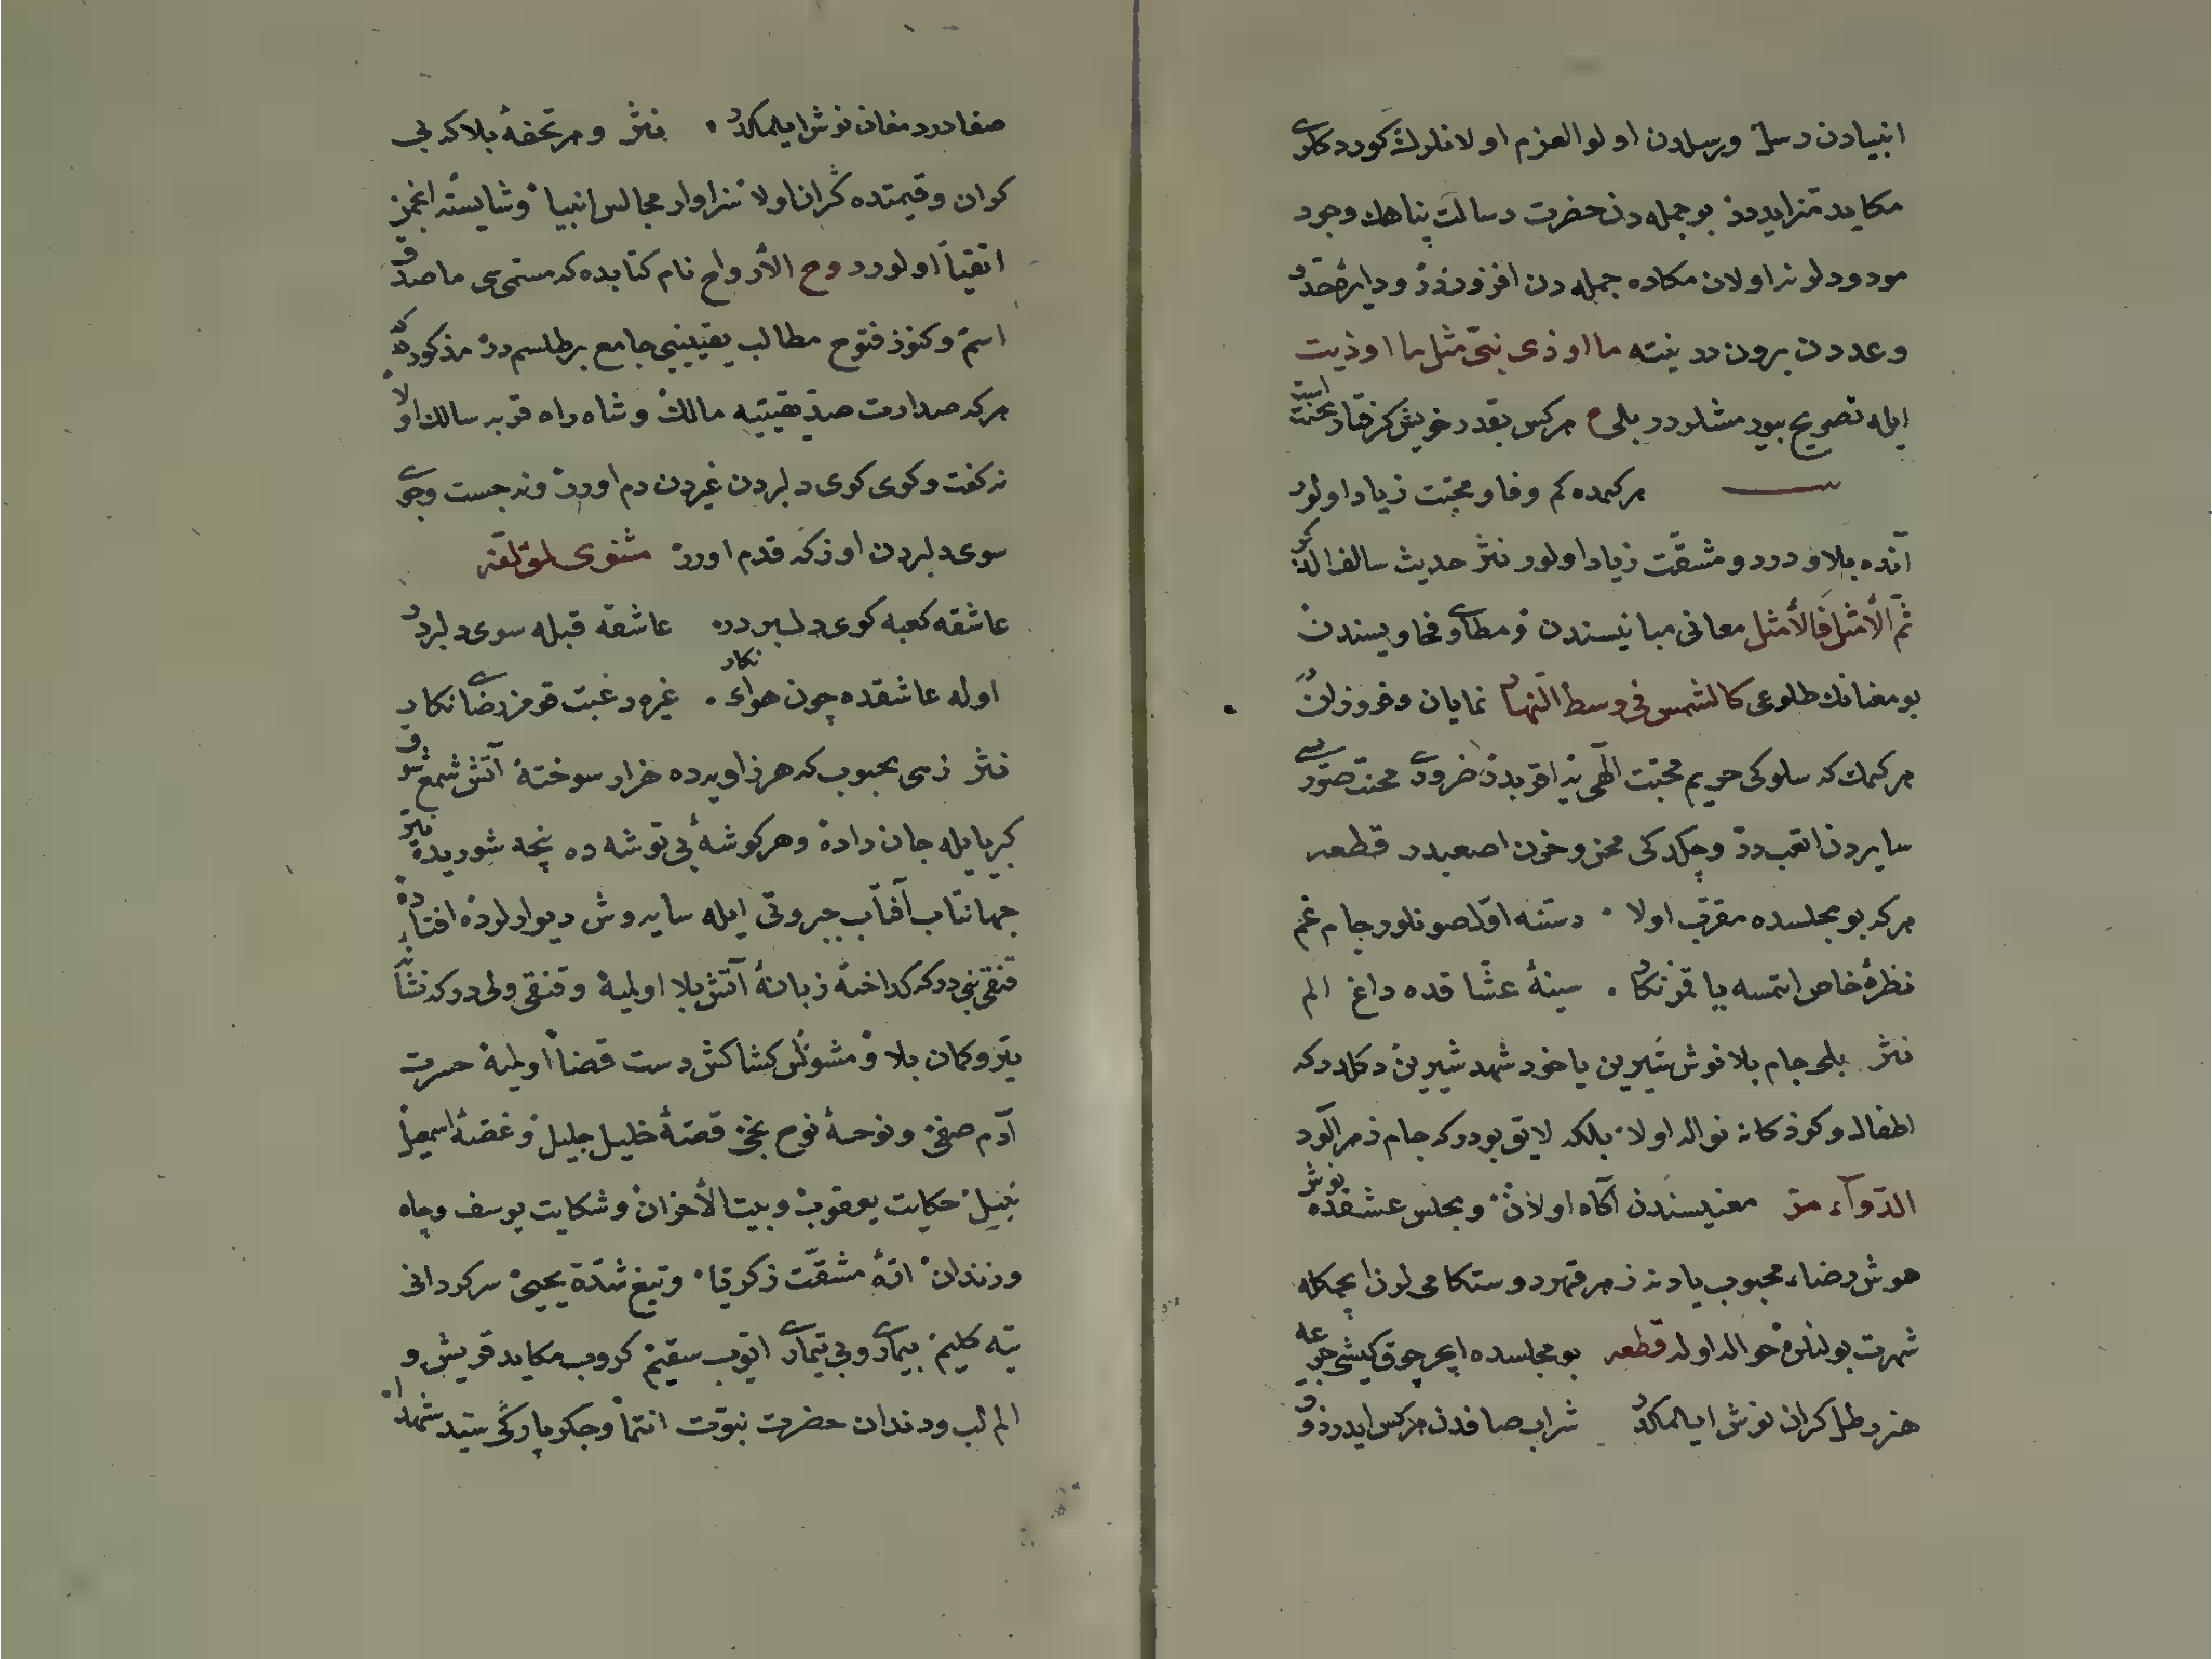 انبیادن رسل ورسلدن اولو العزم اولانلرك كوردكلری
مكاید متزایددر بو جمله دن حضرت رسالت پناهك وجود
مودودلرنه اولان مكاره جمله دن افزوندر ودایرۀ حد
وعددن برون در نیته ما اوذی نبی مثل ما اوذیت
ایله تصریح بیورمشلردر بلی هركس بقدر خویش گرفتار محنت است
بیت هركمده كم وفا و محبت زیاد اولور
آنده بلا و درد و مشقت زیاد اولور نثر حدیث سالف الذكر
ثم الأمثل فالأمثل معانی مبانیسندن ومطاوی فحاویسندن
بو معنانك طلوعی كالشمس فی وسط النهار نمایان وفروزاندر
هركمك كه سلوكی حریم محبت الهی یه اقربدر ضروری محنت صوری سی
سایردن اتعبدر وچكدكی محن وحزن اصعبدر قطعه
هركه بو مجلسده مقرب اولا دستنه اول صونلور جام غم
نظرۀ خاص ایتمسه یا قمز نگار سینۀ عشاقده داغ الم
نثر بلی جام بلا نوش شیرین یاخود شهد شیرین دكلدر كه
اطفال وكودكانه نواله اولا بلكه لایق بودر كه جام زهرآلود
الدواء مر معنیسندن آگاه اولان ومجلس عشقده نوش
هوش رضاء محبوب یادنه زهر قهر دوستكامی لرن ایچمكله
شهرت بولنلره حواله اوله قطعه بو مجلسده ایچر چوق كیشی جرعه
هنر رطل گران نوش ایلمكدر شراب صافدن هركس ایدر ذوق
صفا درد مغان نوش ایلمكدر نثر وهر تحفۀ بلا كه بی
كران وقیمتده گران اولا سزاوار مجالس انبیا وشایستۀ انجمن
اتقیا اولور روح الأرواح نام كتابده كه مسمی سی ما صدق
اسم وكنوز فتوح مطالب یقینیی جامع بر طلسمدر مذكوردركه
هركه صدارت صدیقیته مالك وشاه راه قربه سالك اولا
نه گفت وگوی كوی دلبردن غیردن دم اورر ونه جست وجوی
سوی دلبردن اوزكه قدم اورر مثنوی لمؤلفه
عاشقه كعبه كوی دلبردر عاشقه قبله سوی دلبردر
اوله عاشقده چون هوای نگار غیره رغبت قومز رضای نگار
نثر زهی محبوب كه هر زاویه ده هزار سوختۀ آتش شمع شوق
كبریایله جان داده وهر گوشۀ بی توشه ده نیچه شوریدۀ نیر
جهانتاب آفتاب جبروتی ایله سایه وش دیوارلرده افتاده در
قنقی نبی در كه گداختۀ زبانۀ آتش بلا اولمیه وقنقی ولی در كه نشانۀ
تیر وكمان بلا ومشوش كشاكش دست قضا اولمیه حسرت
آدم صفی ونوحۀ نوح نجی قصۀ خلیل جلیل وغصۀ اسمعیل
نبیل حكایت یعقوب وبیت الأحزان وشكایت یوسف وچاه
وزندان ارۀ مشقت زكریا وتیغ شدة یحیی سرگردانی
تیه كلیم بیماری وبی تیماری ایوب سقیم كروب مكاید قریش و
الم لب ودندان حضرت نبوت انتما وجگر پارۀ سید شهدا